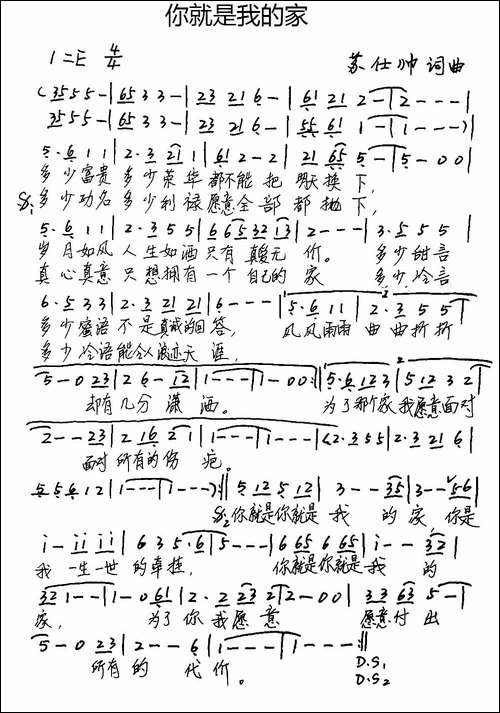 你就是我的家
1=E 4/4
苏仕帅 词曲
(35 5 5 - | 65 3 3 - | 23 21 6 - | 61 21 2 - | 2 - - - |
35 5 5 - | 65 3 3 - | 23 21 6 - | 55 61 1 - | 1 - - - )
5· 6 1 1 | 2· 3 21 1 | 61 2 - 2 | 21 65 5 - | 5 - 0 0 |
多少富贵 多少荣华 都不能 把 明天换 下,
多少功名 多少利禄 愿意全部 都 抛 下,
5· 6 1 1 | 2· 3 5 5 | 6 65 32 13 | 2 - - - | 3· 5 5 5 |
岁月如风 人生如酒 只有真爱无 价。 多少甜言
真心真意 只想拥有 一个自己的 家 多少冷言
6· 5 3 3 | 2· 3 21 21 | 6 - - - | 5· 6 1 1 | 2· 3 5 5 |
多少蜜语 不是真诚的回 答, 风风雨雨 曲曲折折
多少冷语能令人浪迹天 涯,
5 - 0 23 | 2 6 - 12 | 1 - - - | 1 - 0 0 :| 5· 6 12 3 | 5 12 3 2 |
却有几分 潇 洒。 为了那个家 我愿意面对
2 - - 23 | 2 16 2 1 | 1 - - - | 1 - - - | (2· 3 5 5 | 2· 3 21 6 |
面对 所有的伤 疤。
5· 5 6 12 | 1 - - - | 1 - - - ) :| 5 12 5 12 | 3 - - 35 | 3 - - 56 |
你就是你就是 我 的 家, 你是
i - ii ii | 6 3 5· 6 | 5 - - - | 6 65 6 65 | i - - 32 |
我 一生一世 的牵挂, 你就是你就是 我 的
32 1 - - | 1 - 0 61 | 2· 2 23 2 | 2 - 0 0 | 33 63 5 - |
家, 为了 你 我愿 意 愿意付 出
5 - 0 23 | 2 - - 6 | 1 - - - | 1 - - - :‖
所有 的 代 价。
D.S1
D.S2